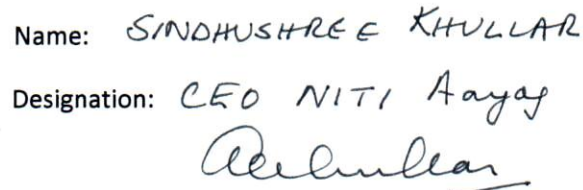 Name: SINDHUSHREE KHULLAR
Designation: CEO NITI Aayog